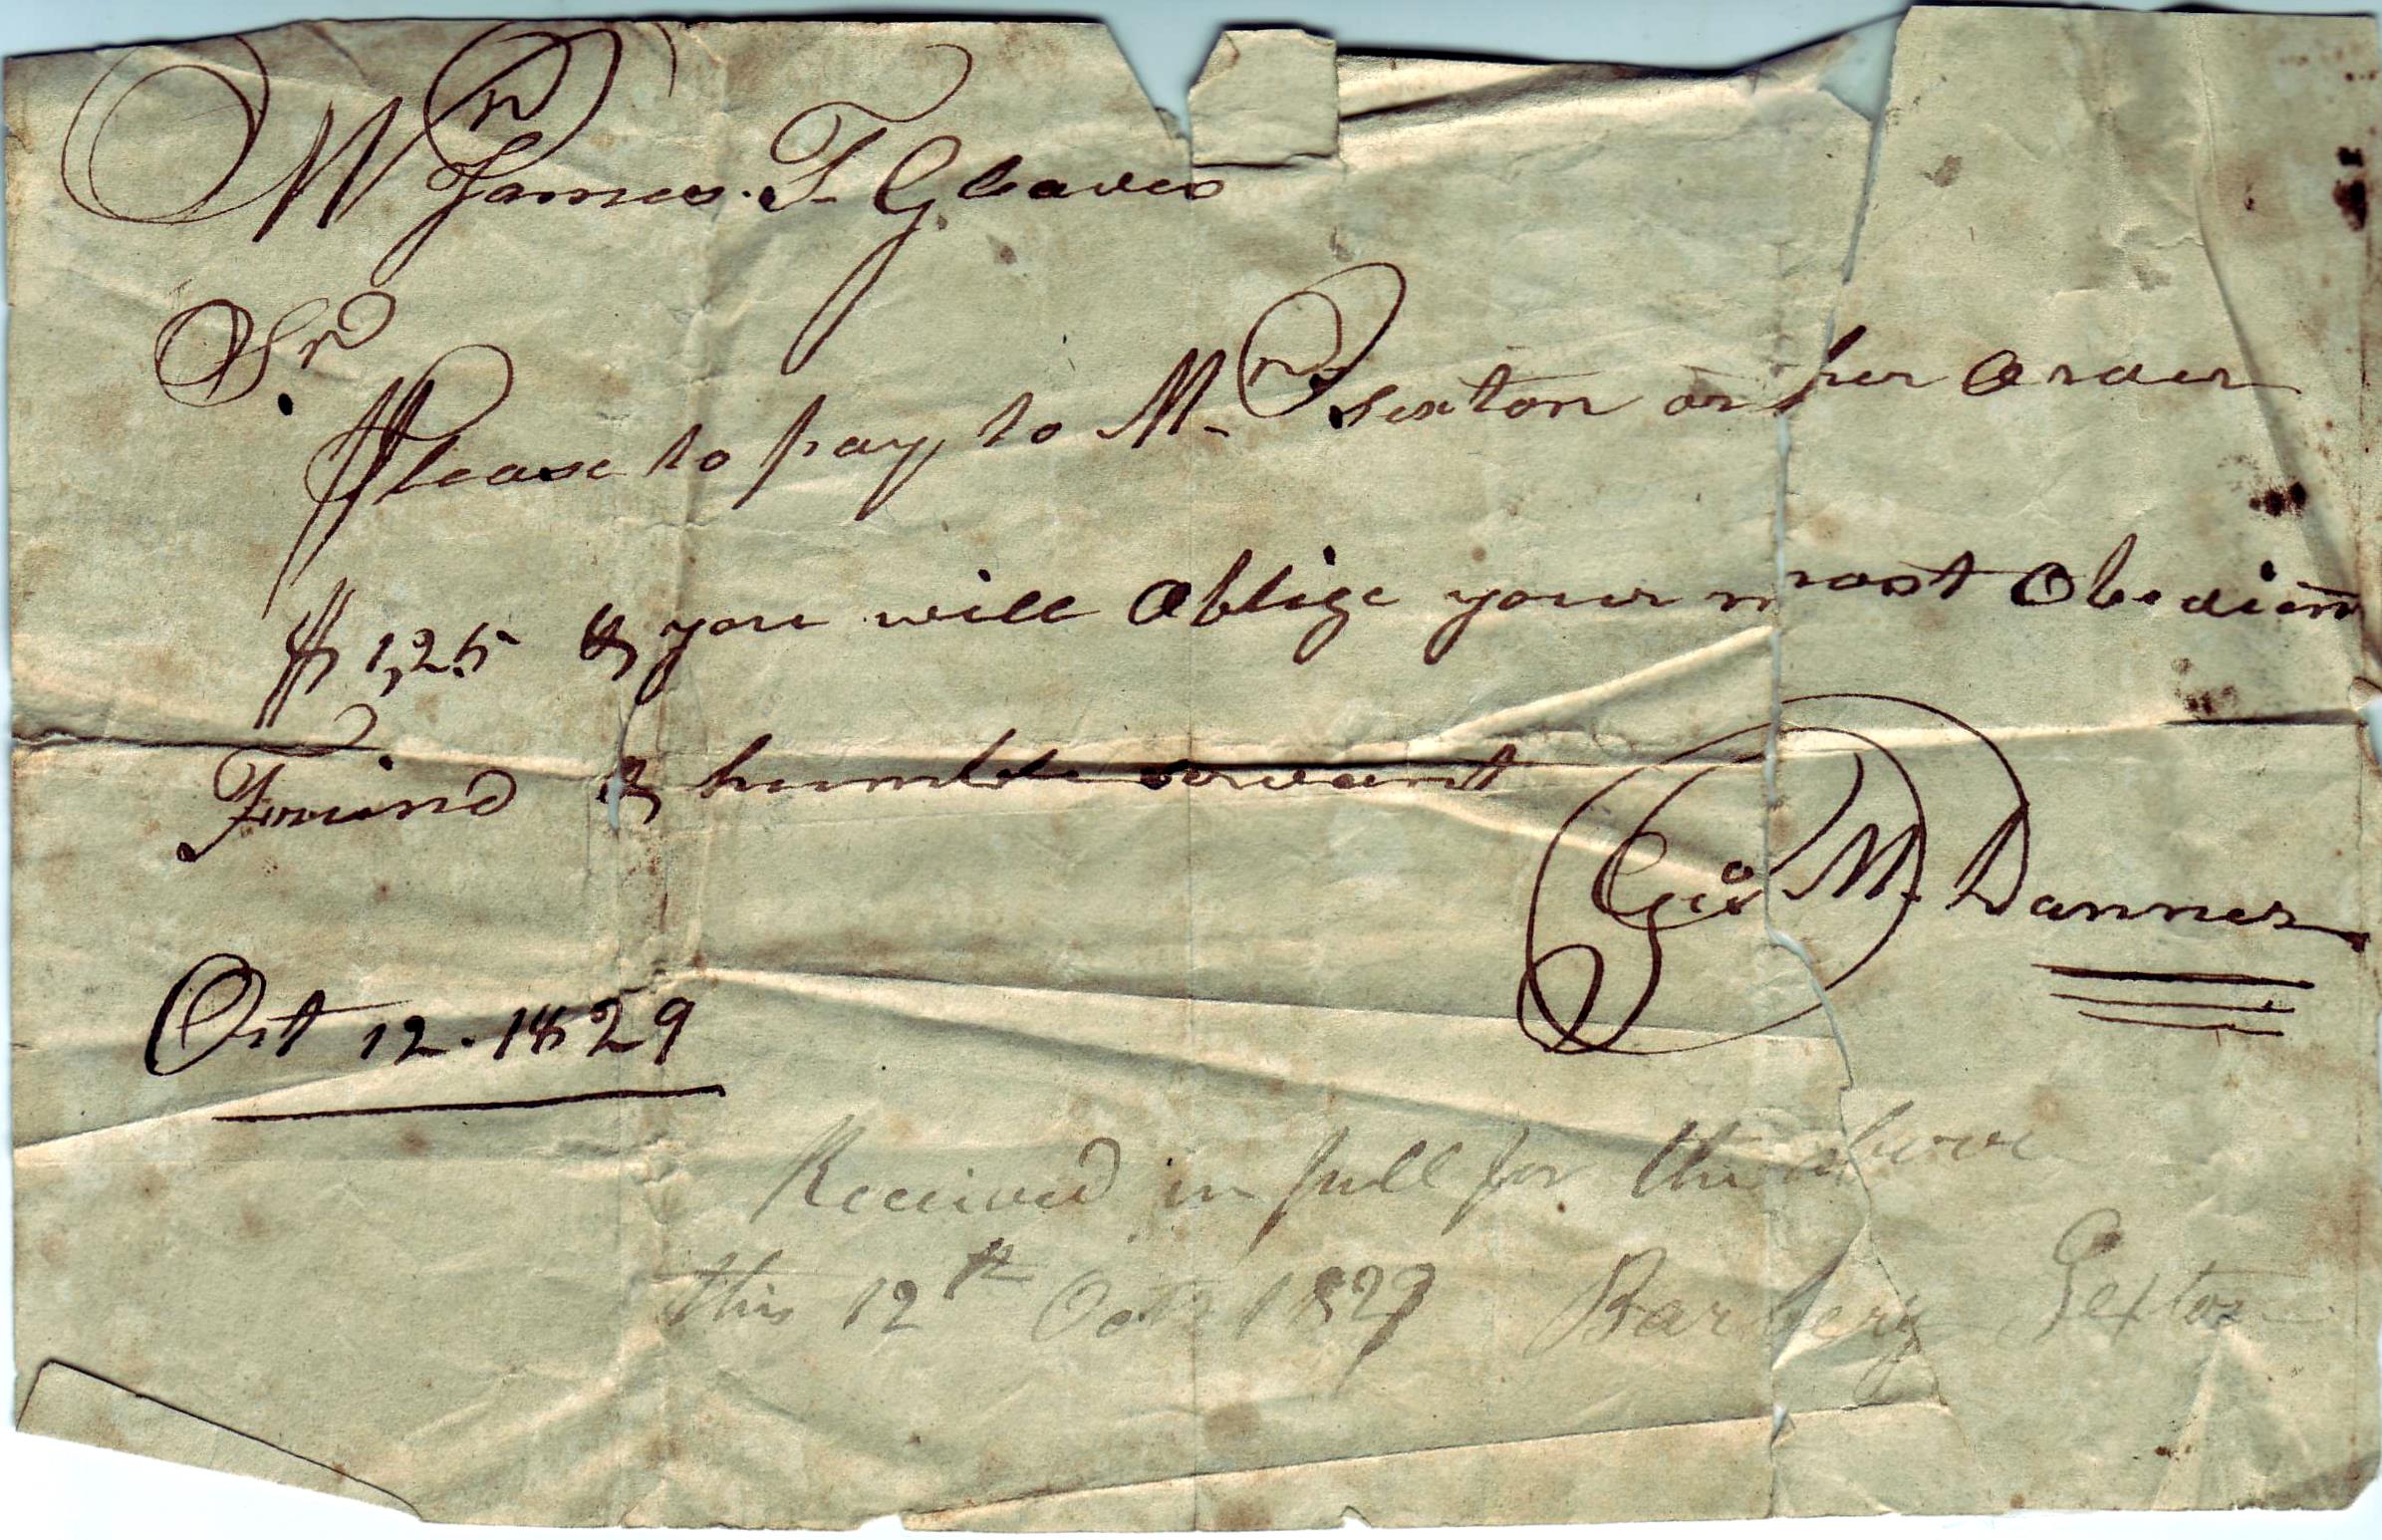 Mr James. T. Gleaves
Sr.
Please to pay to Mrs Sexton or her order
$ 1,25 & you will Oblige your most Obedien
Freind & humble servant
Geo M. Danner
Oct 12. 1829
Received in full for the above
this 12th Octr 1829 Barbery Sexton